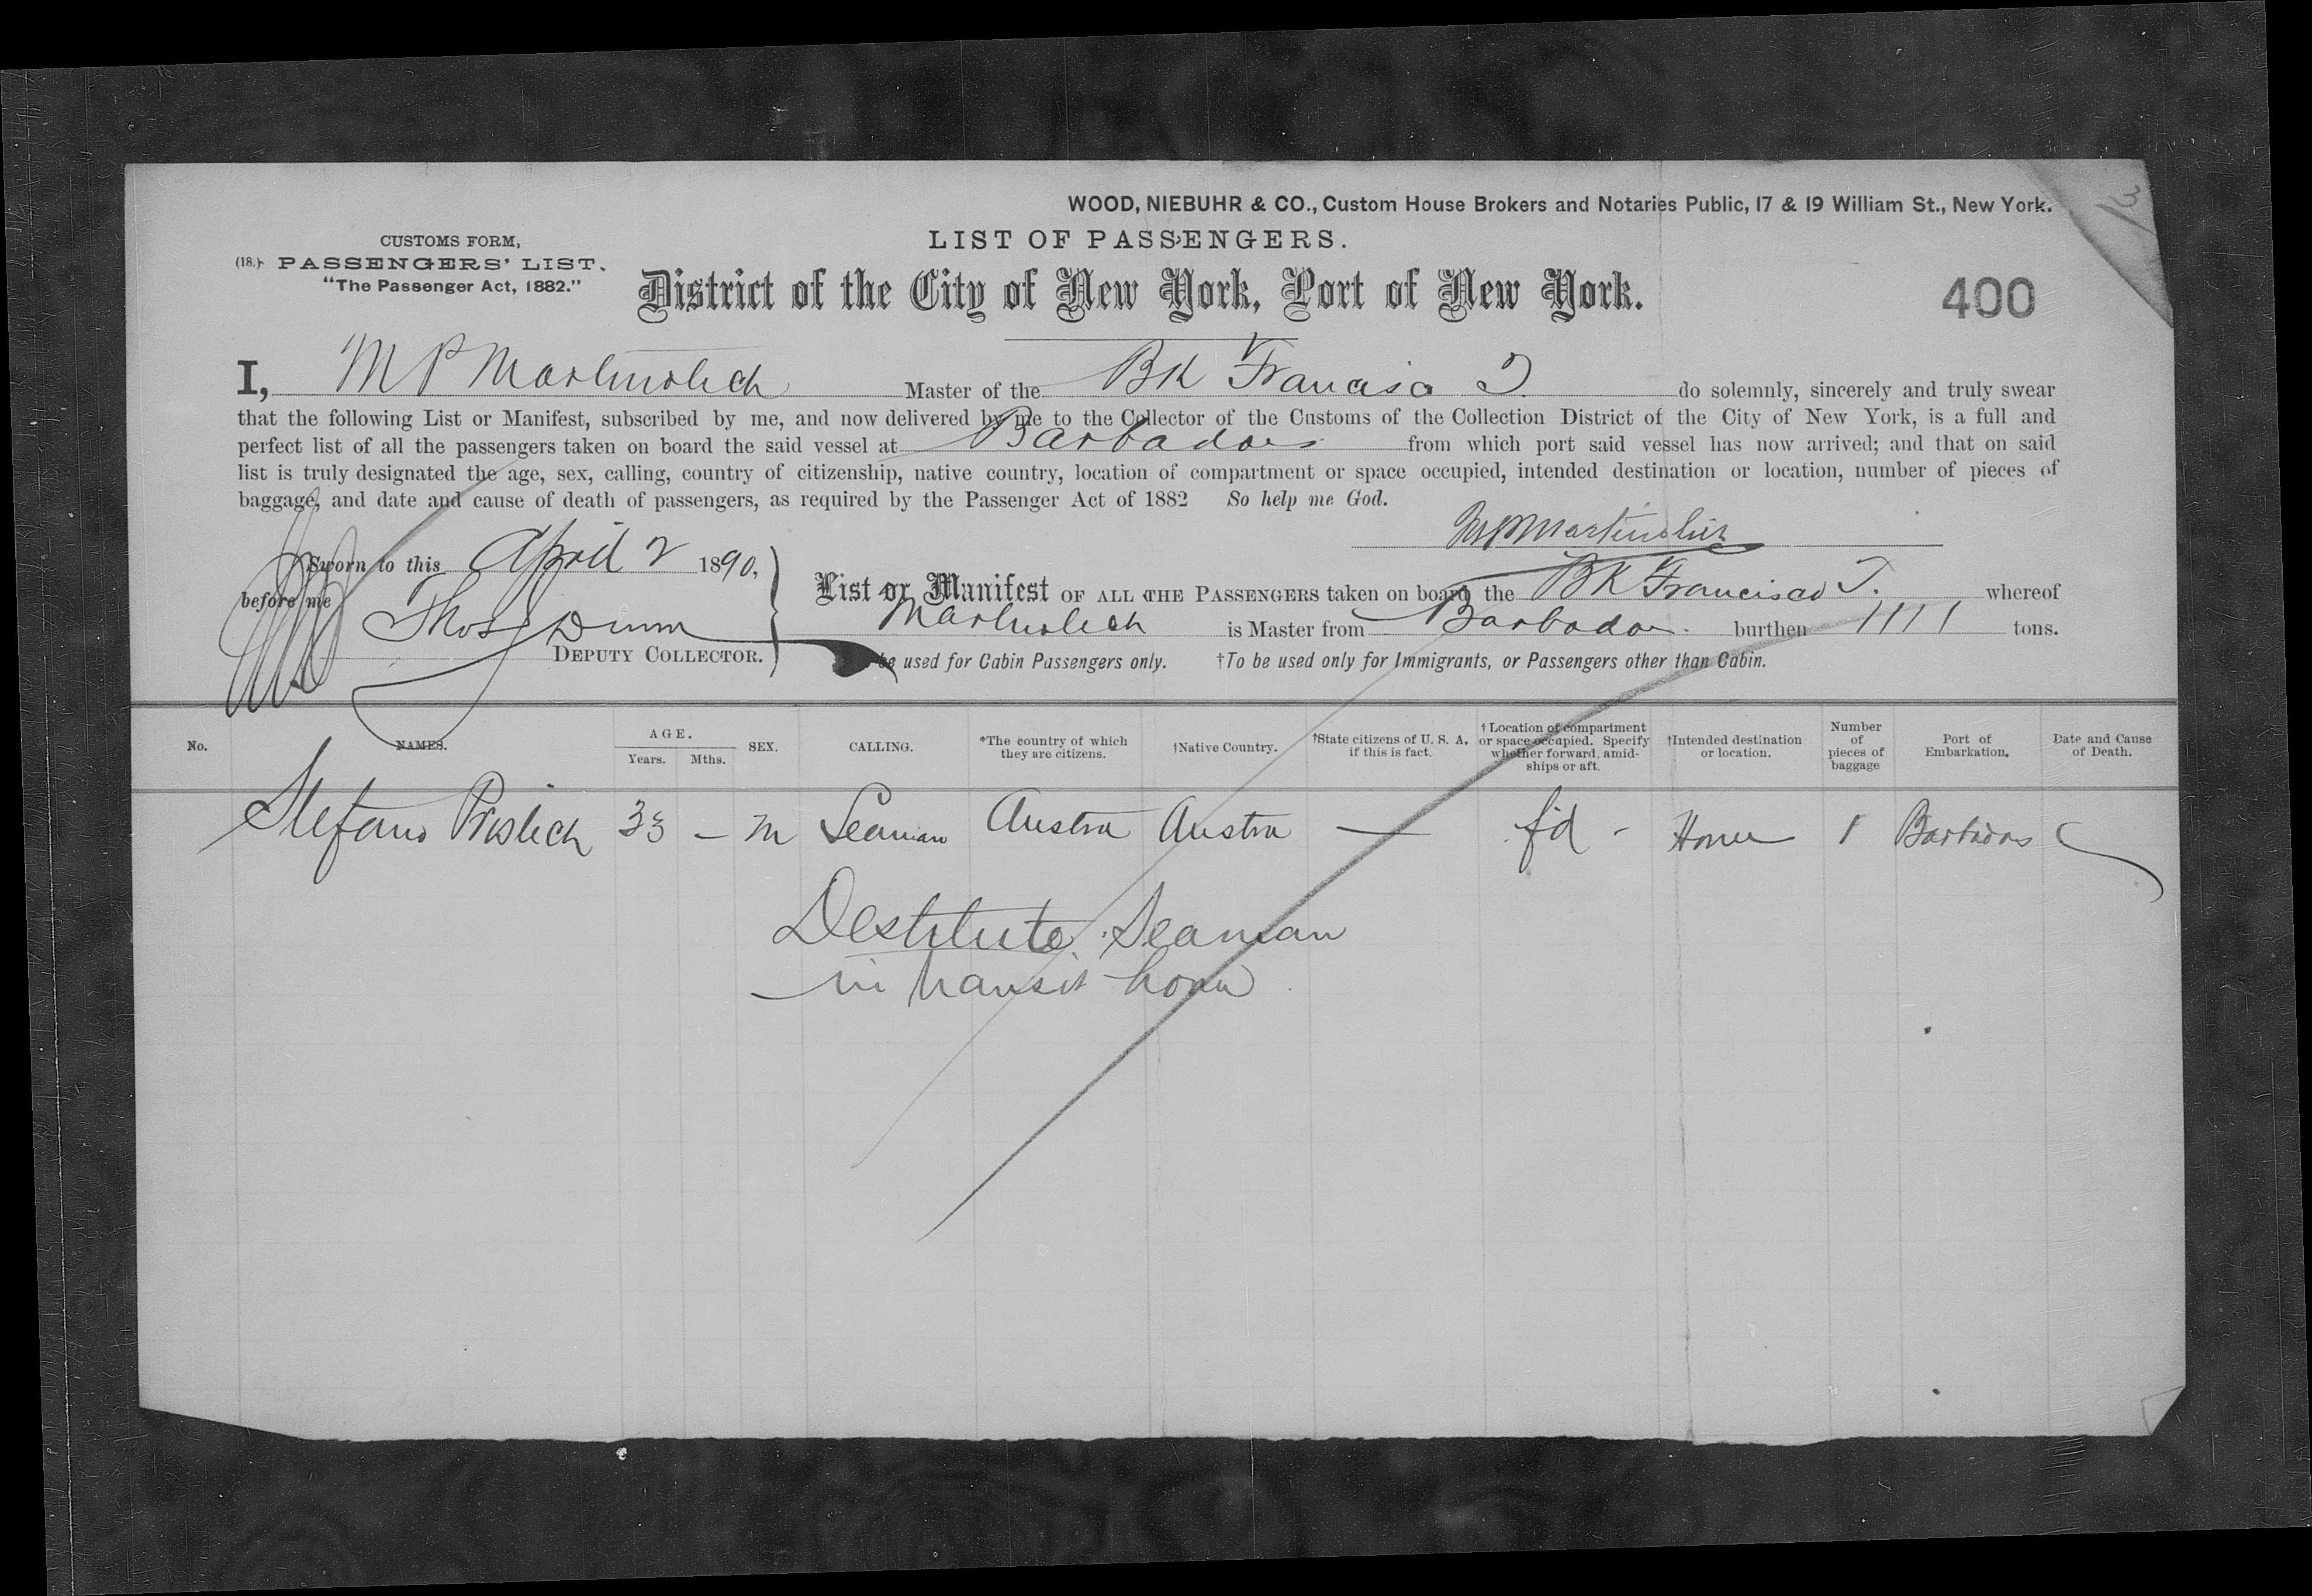 WOOD, NIEBUHR & CO., Custom House Brokers and Notaries Public, 17 & 19 William St., New York.
CUSTOMS FORM,
(18.) PASSENGERS' LIST.
"The Passenger Act, 1882."
LIST OF PASSENGERS.
District of the City of New York, Port of New York.
400
I, M P Martinolich Master of the BK Francisco T. do solemnly, sincerely and truly swear
that the following List or Manifest, subscribed by me, and now delivered by me to the Collector of the Customs of the Collection District of the City of New York, is a full and
perfect list of all the passengers taken on board the said vessel at Barbados from which port said vessel has now arrived; and that on said
list is truly designated the age, sex, calling, country of citizenship, native country, location of compartment or space occupied, intended destination or location, number of pieces of
baggage, and date and cause of death of passengers, as required by the Passenger Act of 1882 So help me God.
MPMartinolich
Sworn to this April 2 1890,
before me Thos Dunn
DEPUTY COLLECTOR.
List or Manifest OF ALL THE PASSENGERS taken on board the BK Francisco T. whereof
Martinolich is Master from Barbados burthen 1111 tons.
be used for Cabin Passengers only. †To be used only for Immigrants, or Passengers other than Cabin.
No. NAMES. AGE. Years. Mths. SEX. CALLING. *The country of which they are citizens. †Native Country. †State citizens of U. S. A. if this is fact. †Location of compartment or space occupied. Specify whether forward, amidships or aft. †Intended destination or location. Number of pieces of baggage Port of Embarkation. Date and Cause of Death.
Stefano 33 — M Seaman Austra Austra — fd - Home 1 Barbados
Destitute Seaman
in transit home